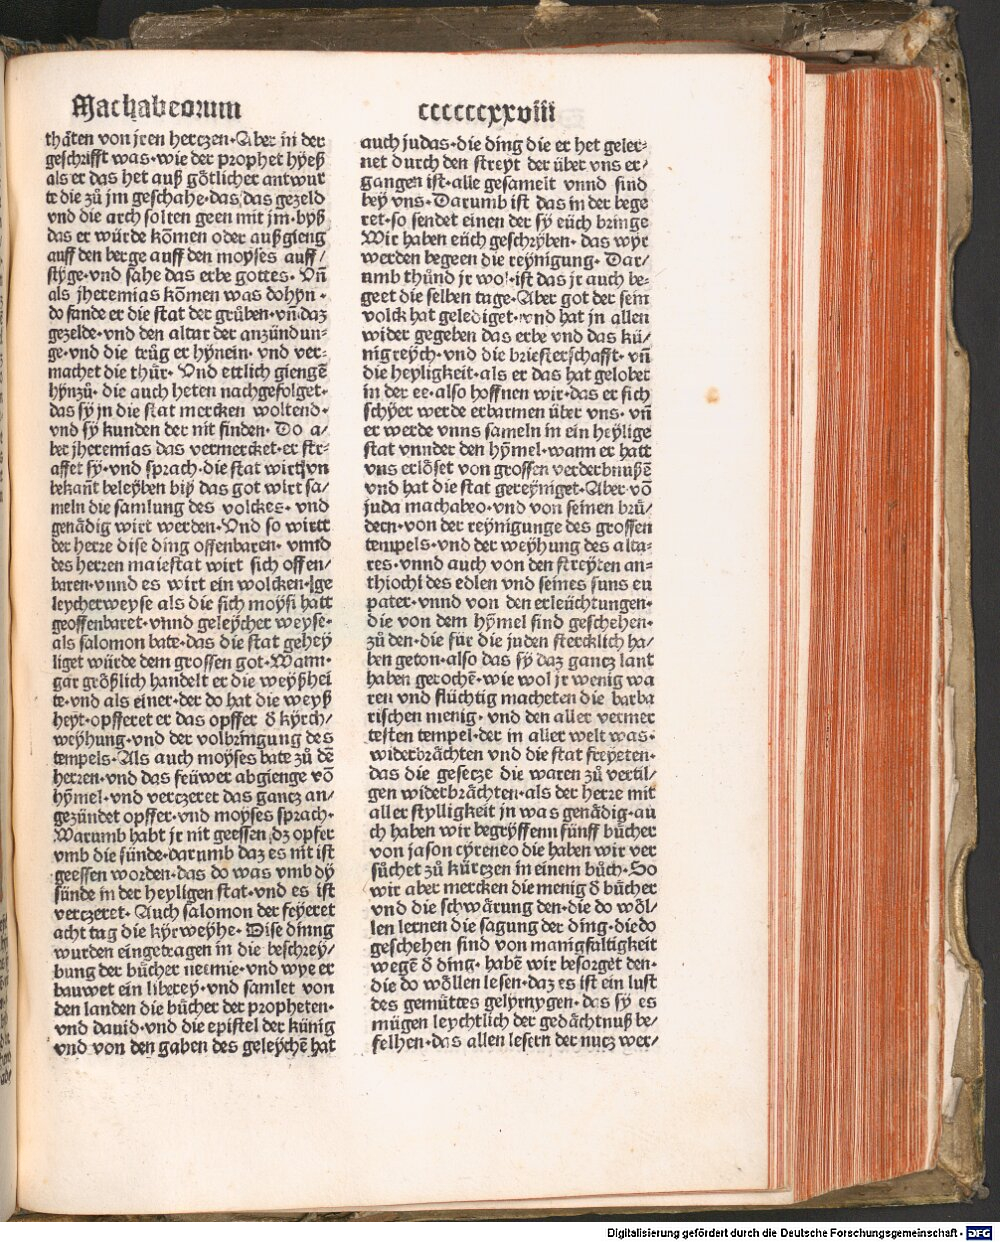 Machabeorum
ccccccxxviii
thäten von jren herczen·Aber in der
geschrifft was·wie der prophet hÿeß
als er das het auß götlicher antwur
te die zů jm geschahe·das das gezeld
vnd die arch solten geen mit jm·byß
das er würde kömen oder außgieng
auff den berge auff den moyses auff/
styge·vnd sahe das erbe gottes·Vñ
als jheremias kömen was dohyn·
do fande er die stat der grůben·vñ daz
gezelde·vnd den altar der anzündun⸗
ge·vnd die trůg er hÿnein·vnd ver⸗
machet die thür·Vnd ettlich giengē
hÿnzů·die auch heten nachgefolget·
das sÿ jn die stat mercken woltend·
vnd sÿ kunden der nit finden·Do a/
ber jheremias das vermercket·er str⸗
affet sÿ·vnd sprach·die stat wirt vn
bekañt beleÿben biß das got wirt sa/
meln die samlung des volckes·vnd
genädig wirt werden·Vnd so wirtt
der herre dise ding offenbaren·vnnd
des herren maiestat wirt sich offen/
baren·vnnd es wirt ein wolcken·ge
leycherweyse als die sich moÿsi hatt
geoffenbaret·vnnd geleÿcher weyse·
als salomon bate·das die stat geheÿ
liget würde dem grossen got·Wann·
gar größlich handelt er die weÿßhei
te·vnd als einer·der do hat die weyß
heÿt·opfferet er das opffer ð kÿrch/
weÿhung·vnd der volbringung des
tempels·Als auch moÿses bate zů dē
herren·vnd das feüwer abgienge vō
hÿmel·vnd verczeret das gancz an/
gezündet opffer·vnd moÿses sprach·
Warumb habt jr nit geessen dz opfer
vmb die sünde·darumb daz es nit ist
geessen worden·das do was vmb dÿ
sünde in der heyligen stat·vnd es ist
verczeret·Auch salomon der feÿeret
acht tag die kÿrweÿhe·Dise dinng
wurden eingetragen in die beschreÿ/
bung der bücher neemie·vnd wye er
bauwet ein liberey·vnd samlet von
den landen die bücher der propheten·
vnd dauid·vnd die epistel der künig
vnd von den gaben des geleÿchē hat
auch judas·die ding die er het geler⸗
net durch den streyt der über vns er/
gangen ist·alle gesamelt vnnd sind
beÿ vns·Darumb ist das in der bege
ret·so sendet einen der sÿ eüch bringe
Wir haben eüch geschrÿben·das wÿr
werden begeen die reÿnigung·Dar/
umb thůnd jr wol·ist das jr auch be⸗
geet die selben tage·Aber got der sein
volck hat gelediget·vnd hat in allen
wider gegeben das erbe vnd das kü/
nigreÿch·vnd die briesterschafft·vñ
die heyligkeit·als er das hat gelobet
in der ee·also hoffnen wir·das er sich
schÿer werde erbarmen über vns·vñ
er werde vnns sameln in ein heÿlige
stat vnnder den hÿmel·wann er hatt
vns erlöset von grossen verderbnußē
vnd hat die stat gereÿniget·Aber vō
juda machabeo·vnd von seinen brü/
dern·von der reÿnigunge des grossen
tempels·vnd der weÿhung des alta⸗
res·vnnd auch von den streÿten an⸗
thiochi des edlen vnd seines suns eu
pater·vnnd von den erleüchtungen·
die von dem hÿmel sind geschehen·
zů den·die für die juden sterecklich ha/
ben geton·also das sÿ daz gancz lant
haben gerochē·wie wol jr wenig wa
ren vnd flüchtig macheten die barba
rischen menig·vnd den aller vermer
testen tempel·der in aller welt was·
widerbrächten vnd die stat freyeten·
das die gesecze die waren zů vertil/
gen widerbrächten·als der herre mit
aller stylligkeit jn was genädig·au
ch haben wir begrÿffenn fünff bücher
von jason cÿreneo die haben wir ver
sůchet zů kürczen in einem bůch·So
wir aber mercken die menig ð bücher
vnd die schwärung den·die do wöl/
len lernen die sagung der ding·die do
geschehen sind von manigfaltigkeit
wegē ð ding·habē wir besorget den·
die do wöllen lesen·daz es ist ein lust
des gemüttes gelyrnygen·das sÿ es
mügen leychtlich der gedächtnuß be/
felhen·das allen lesern der nucz wer/
Digitalisierung gefördert durch die Deutsche Forschungsgemeinschaft · DFG